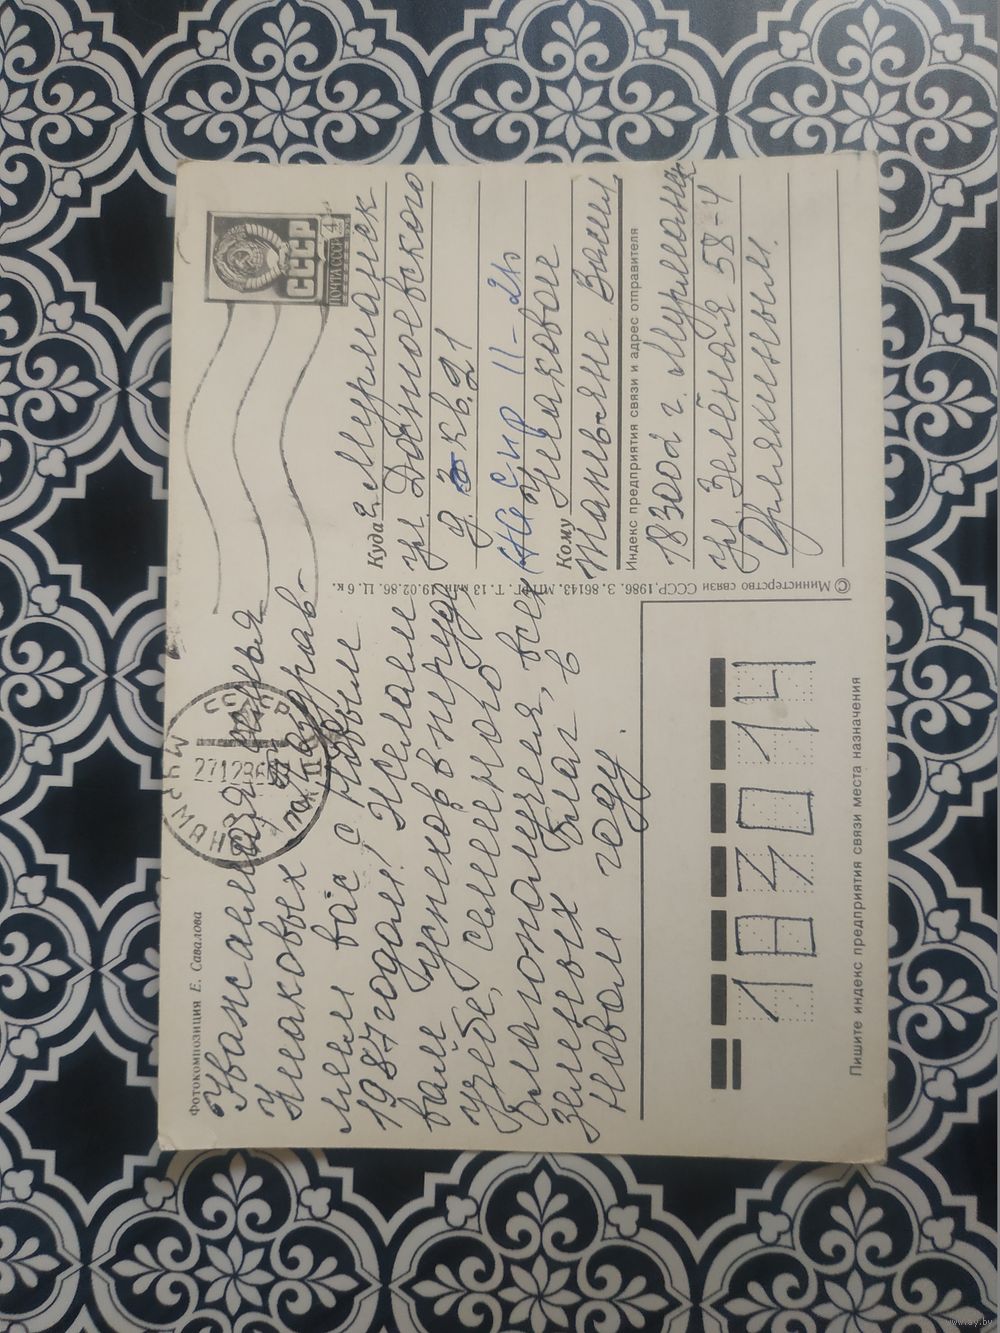 Фотокомпозиция Е. Савалова
Уважаемая семья
Ушаковых Поздрав-
ляем вас с Новым
1987 годом! Желаем
вам успехов в труде
учебе, семейного
благополучия, всех
земных благ в
новом году.
СССР
ПОЧТА СССР 4
СССР
МУРМАНСК
271286
Куда г. Мурманск
ул. Достоевского
д. кв. 21
11-
Кому Ушаковой
Татьяне
Индекс предприятия связи и адрес отправителя
183002 г. Мурманск
ул. Зелёная 58-4
© Министерство связи СССР. 1986. З. 86143. МПФГ. Т. 13 млн. 19.02.86. Ц. 6 к.
183014
Пишите индекс предприятия связи места назначения
www.ay.by